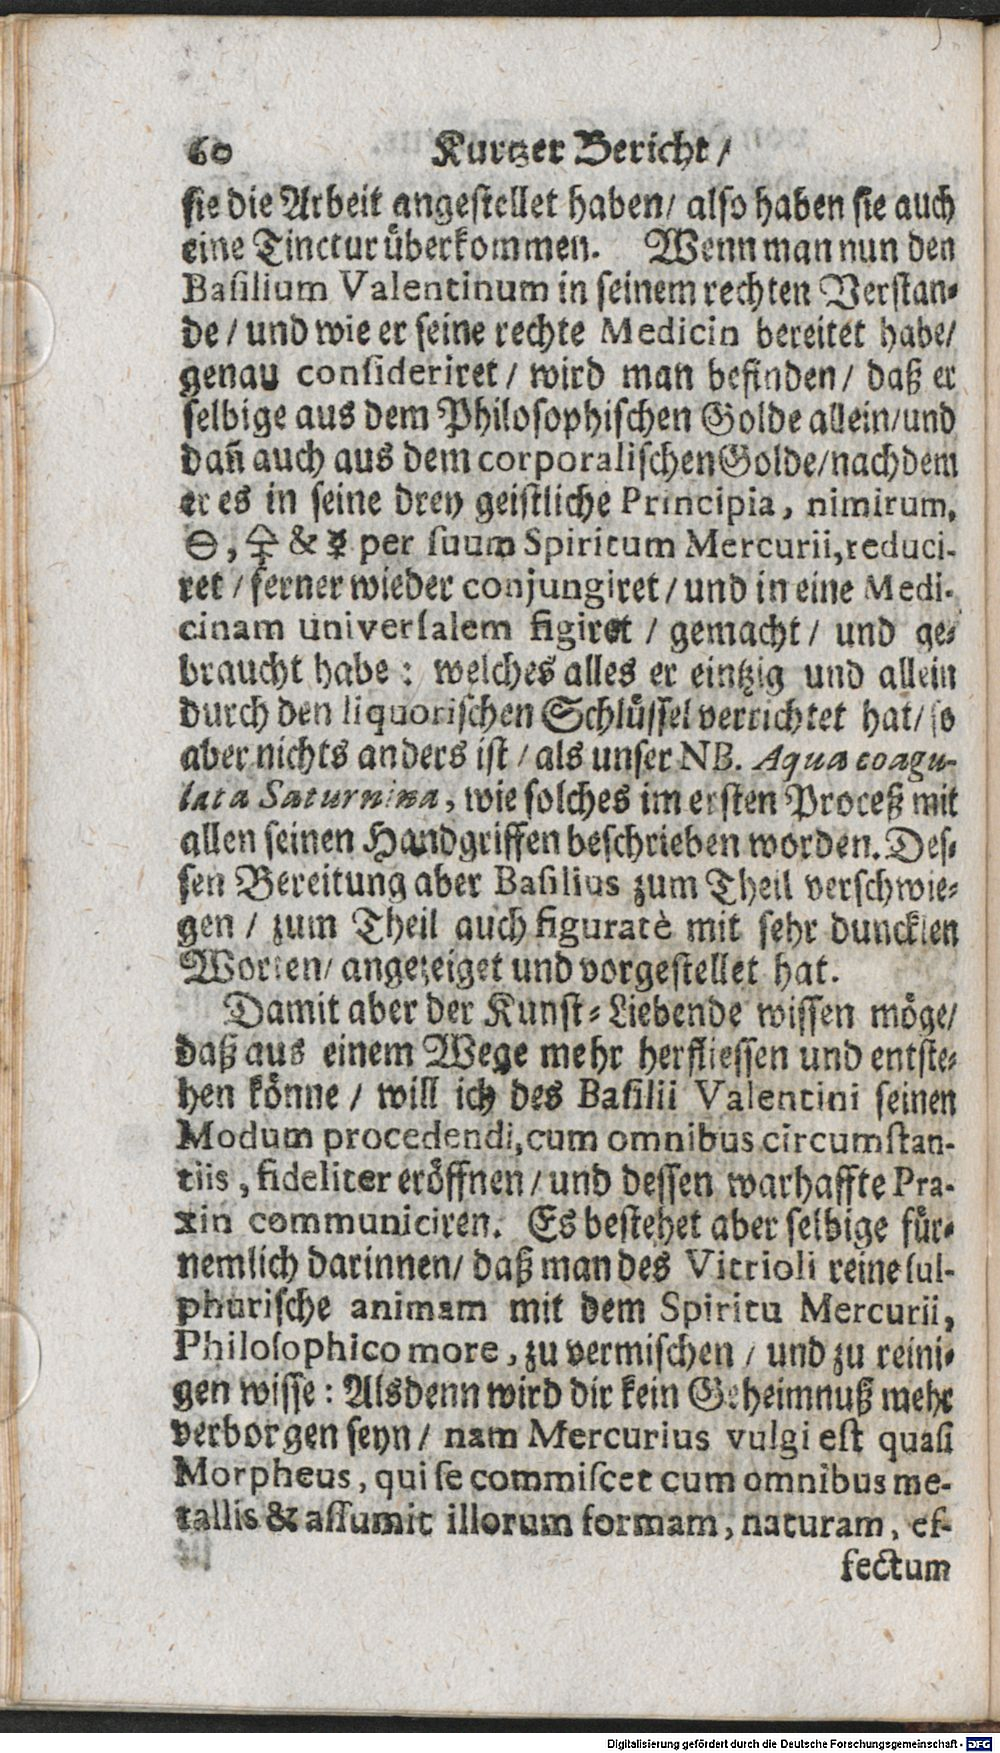 60 Kurtzer Bericht /
sie die Arbeit angestellet haben/ also haben sie auch
eine Tinctur überkommen. Wenn man nun den
Basilium Valentinum in seinem rechten Verstan-
de / und wie er seine rechte Medicin bereitet habe/
genau consideriret / wird man befinden / daß er
selbige aus dem Philosophischen Golde allein/und
dañ auch aus dem corporalischen Golde/nachdem
er es in seine drey geistliche Principia, nimirum,
🜔, 🜍 & ☿ per suum Spiritum Mercurii, reduci-
ret / ferner wieder conjungiret / und in eine Medi-
cinam universalem figiret / gemacht / und ge-
braucht habe: welches alles er eintzig und allein
durch den liquorischen Schlüssel verrichtet hat/ so
aber nichts anders ist / als unser NB. Aqua coagu-
lata Saturnina, wie solches im ersten Proceß mit
allen seinen Handgriffen beschrieben worden. Des-
sen Bereitung aber Basilius zum Theil verschwie-
gen / zum Theil auch figuratè mit sehr dunckten
Worten/ angezeiget und vorgestellet hat.
Damit aber der Kunst-Liebende wissen möge/
daß aus einem Wege mehr herfliessen und entste-
hen könne / will ich des Basilii Valentini seinen
Modum procedendi, cum omnibus circumstan-
tiis, fideliter eröffnen / und dessen warhaffte Pra-
xin communiciren. Es bestehet aber selbige für-
nemlich darinnen/ daß man des Vitrioli reine sul-
phurische animam mit dem Spiritu Mercurii,
Philosophico more, zu vermischen / und zu reini-
gen wisse: Alsdenn wird dir kein Geheimnuß mehr
verborgen seyn / nam Mercurius vulgi est quasi
Morpheus, qui se commiscet cum omnibus me-
tallis & assumit illorum formam, naturam, ef-
fectum
Digitalisierung gefördert durch die Deutsche Forschungsgemeinschaft - DFG